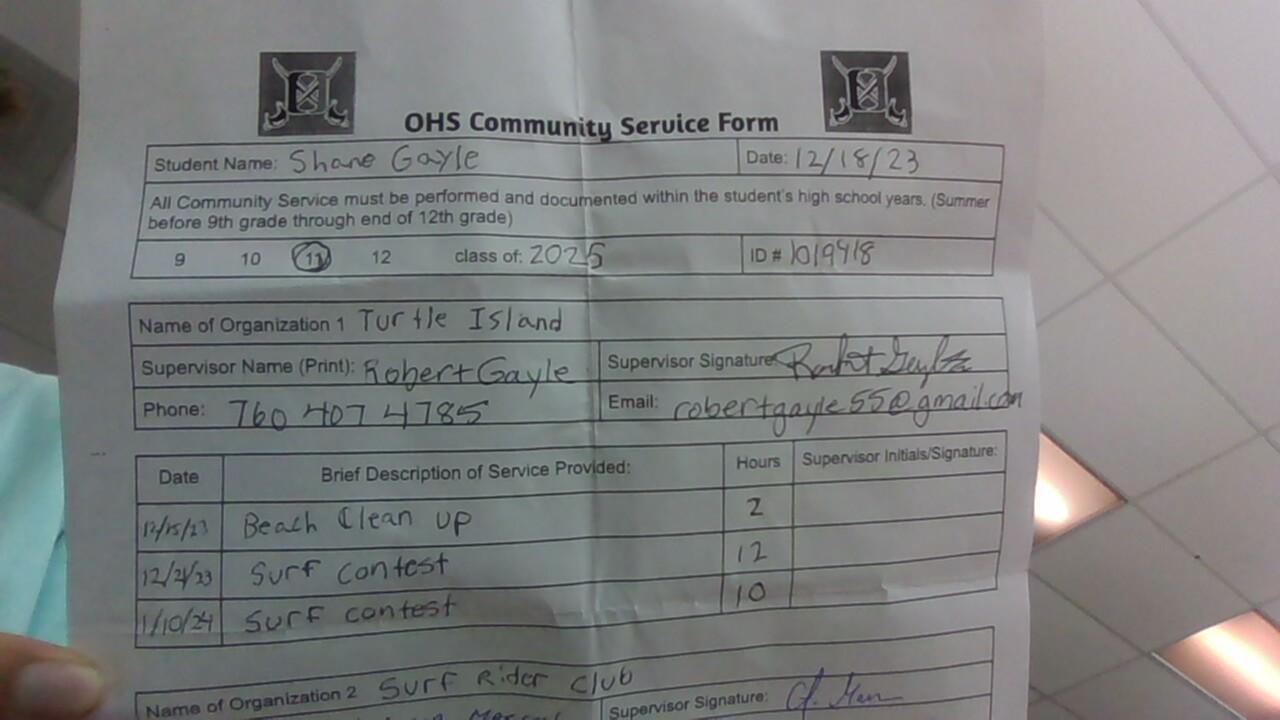 OHS Community Service Form
Student Name: Shane Gayle Date: 12/18/23
All Community Service must be performed and documented within the student's high school years. (Summer
before 9th grade through end of 12th grade)
9 10 11 12 class of: 2025 ID # 1019418
Name of Organization 1 Turtle Island
Supervisor Name (Print): Robert Gayle Supervisor Signature Robert Gayle
Phone: 760 407 4785 Email: robertgayle55@gmail.com
Date Brief Description of Service Provided: Hours Supervisor Initials/Signature:
12/15/23 Beach Clean up 2
12/21/23 Surf contest 12
1/10/24 Surf contest 10
Name of Organization 2 Surf Rider club
Supervisor Signature: